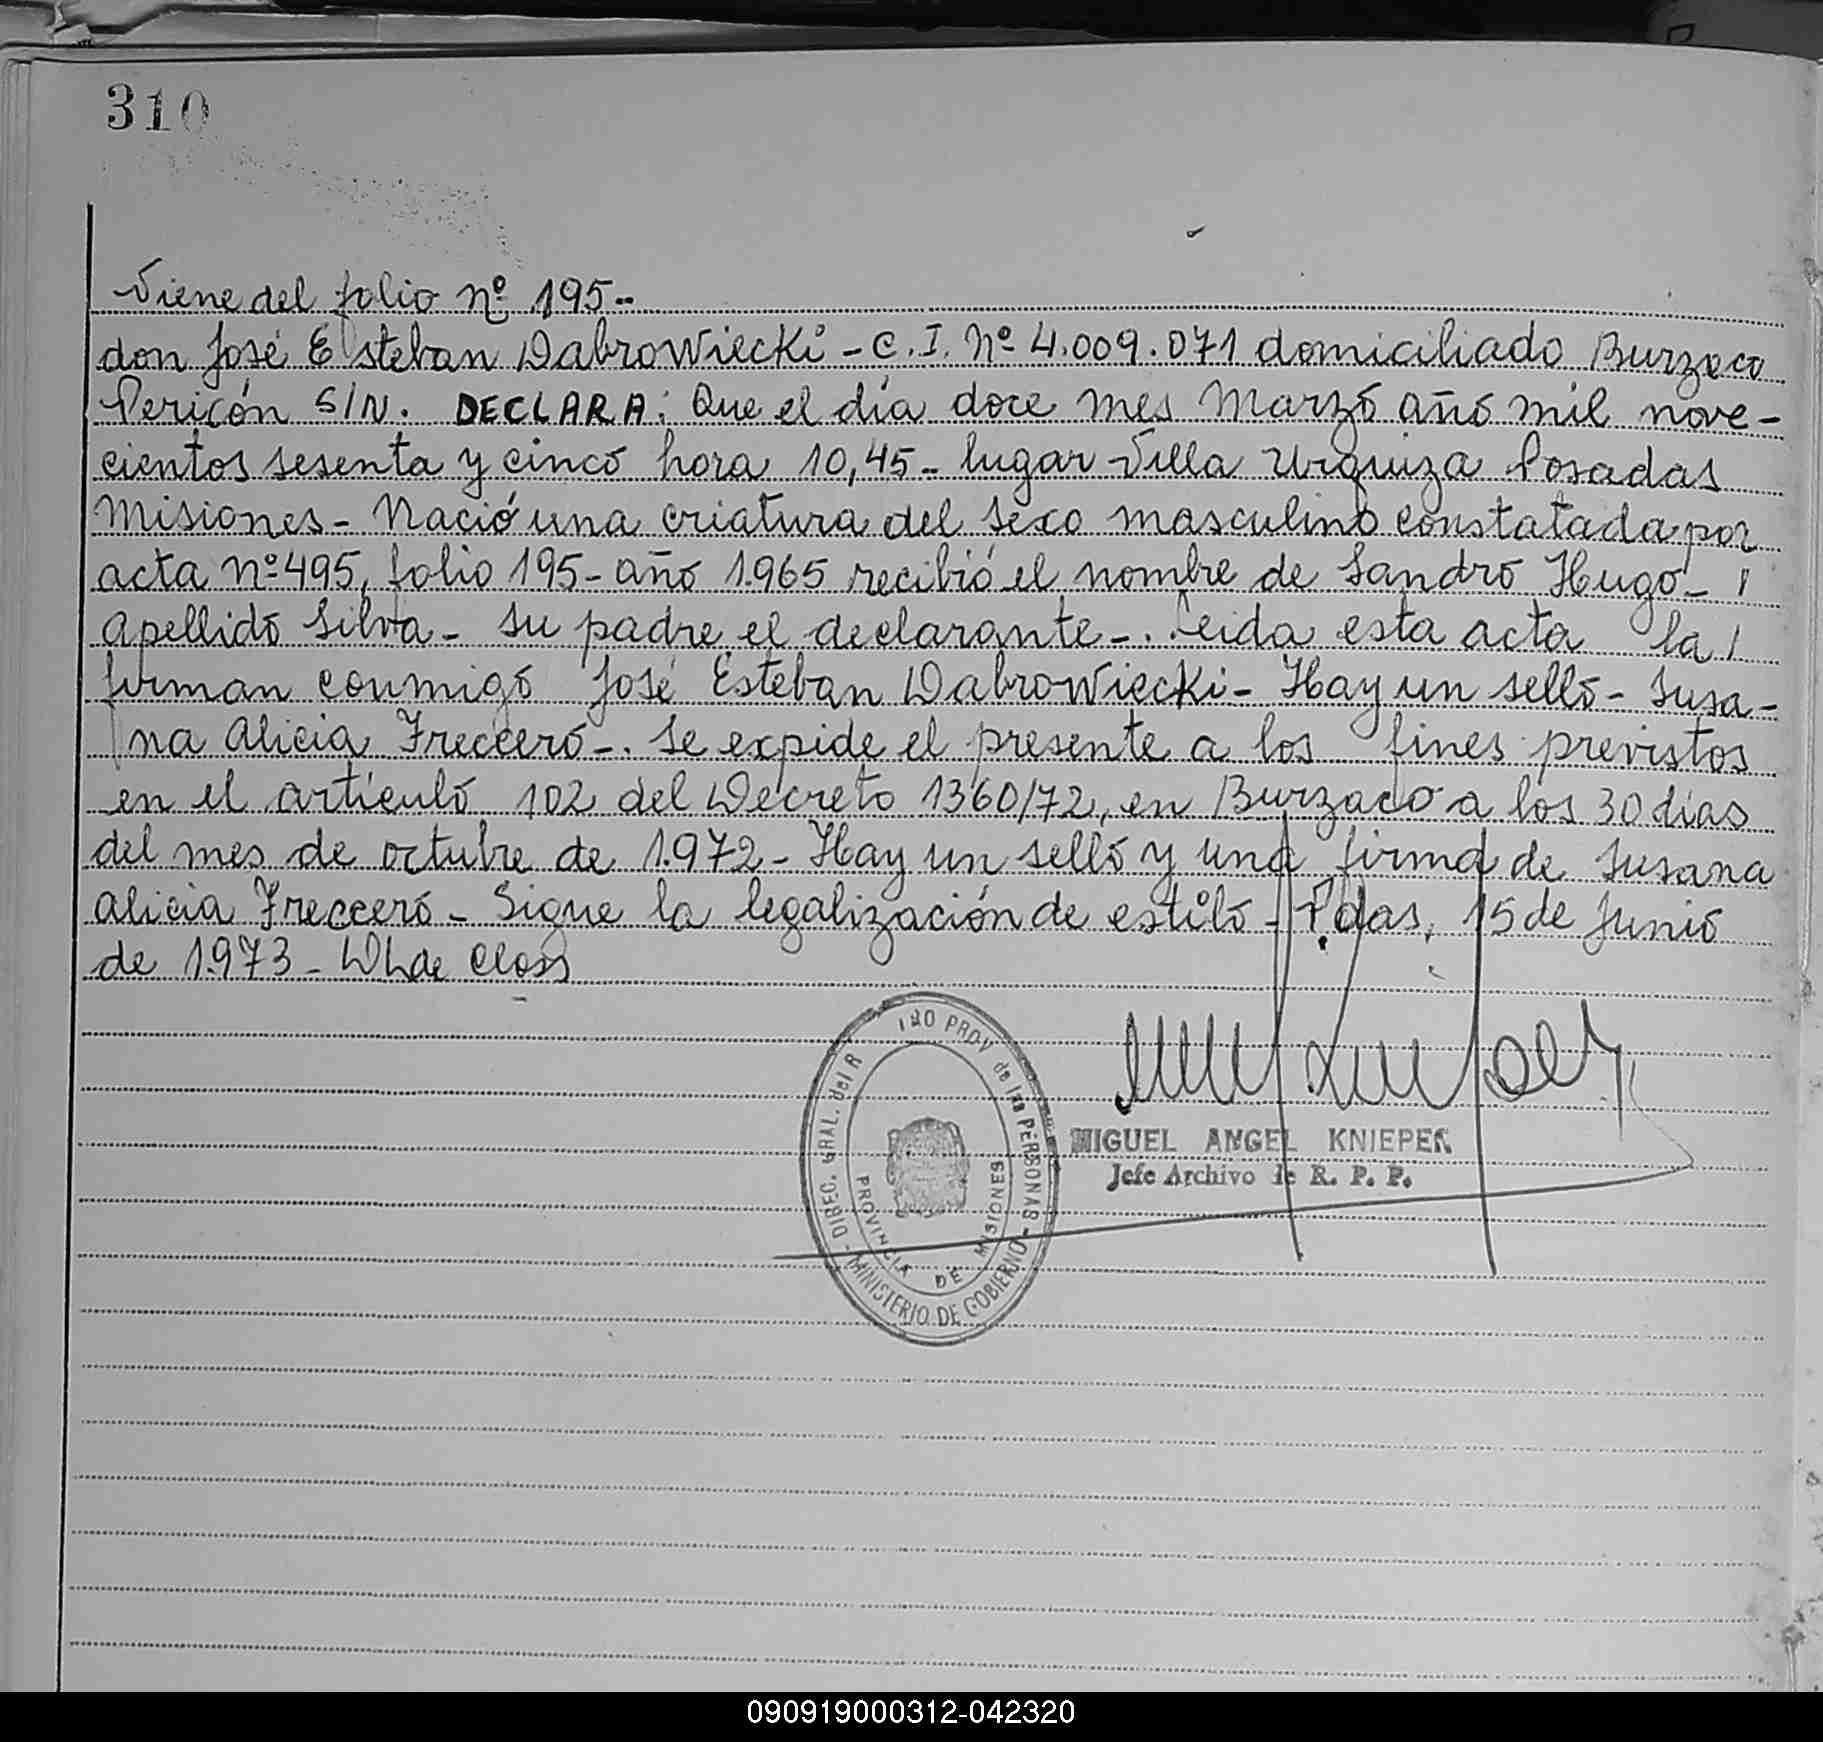 310
Viene del folio Nº 195--
don José Esteban Dabrowiecki - C.I. Nº 4.009.071 domiciliado Burzaco
Pericón S/N. DECLARA: Que el día doce mes Marzo año mil nove-
cientos sesenta y cinco hora 10,45 - lugar Villa Urquiza Posadas
Misiones - Nació una criatura del sexo masculino constatada por
acta Nº 495, folio 195 - año 1.965 recibió el nombre de Sandro Hugo -
Apellido Silva - su padre el declarante -. Leida esta acta la
firman conmigo José Esteban Dabrowiecki - Hay un sello - Susa-
na Alicia Freccero -. Se expide el presente a los fines previstos
en el artículo 102 del Decreto 1360/72, en Burzaco a los 30 días
del mes de octubre de 1.972 - Hay un sello y una firma de Susana
Alicia Freccero - Sigue la legalización de estilo - Pdas, 15 de Junio
de 1.973 - W.L de Closs
DIREC. GRAL. del R PROV de las PERSONAS
MINISTERIO DE GOBIERNO
PROVINCIA DE MISIONES
MIGUEL ANGEL KNIEPER
Jefe Archivo de R. P. P.
090919000312-042320